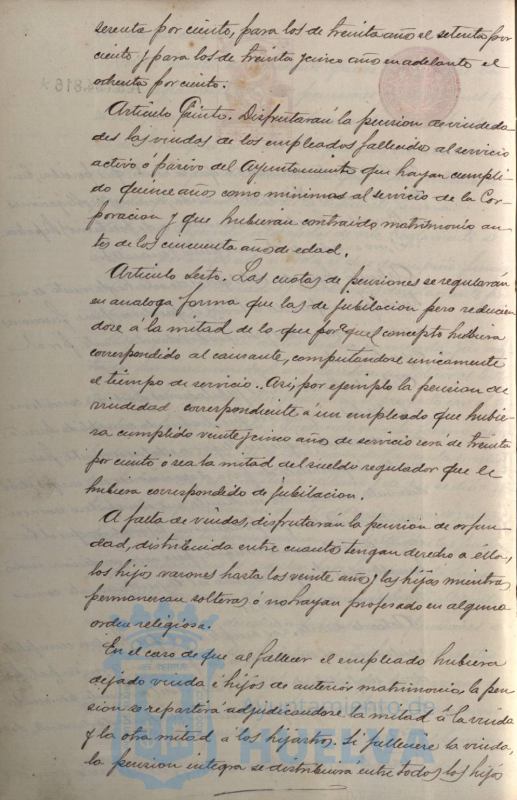 sesenta por ciento, para los de treinta años el setenta por
ciento y para los de treinta y cinco años en adelante el
ochenta por ciento.
Artículo Quinto. Disfrutarán la pension de viudeda
des las viudas de los empleados fallecidos al servicio
activo ó pasivo del Ayuntamiento que hayan cumpli
do quince años como minimas al servicio de la Cor
poracion y que hubieran contraido matrimonio an
tes de los cincuenta años de edad.
Artículo Sexto. Las cuotas de pensiones se regularán
en analoga forma que las de jubilacion pero reducien
dose á la mitad de lo que por aquel concepto hubiera
correspondido al causante, computandose unicamente
el tiempo de servicio. Asi, por ejemplo la pension de
viudedad correspondiente á un empleado que hubie
ra cumplido veinticinco años de servicio será de treinta
por ciento ó sea la mitad del sueldo regulador que le
hubiera correspondido de jubilacion.
A falta de viudas, disfrutarán la pension de orfan
dad, distribuida entre cuantos tengan derecho á ella,
los hijos varones hasta los veinte años y las hijas mientras
permanezcan solteras ó no hayan profesado en alguna
orden religiosa.
En el caso de que al fallecer el empleado hubiera
dejado viuda é hijos de anterior matrimonio, la pen
sion se repartirá adjudicandose la mitad á la viuda
y la otra mitad á los hijastros. Si falleciere la viuda,
la pension integra se distribuirá entre todos los hijos
Ayuntamiento de
HUELVA